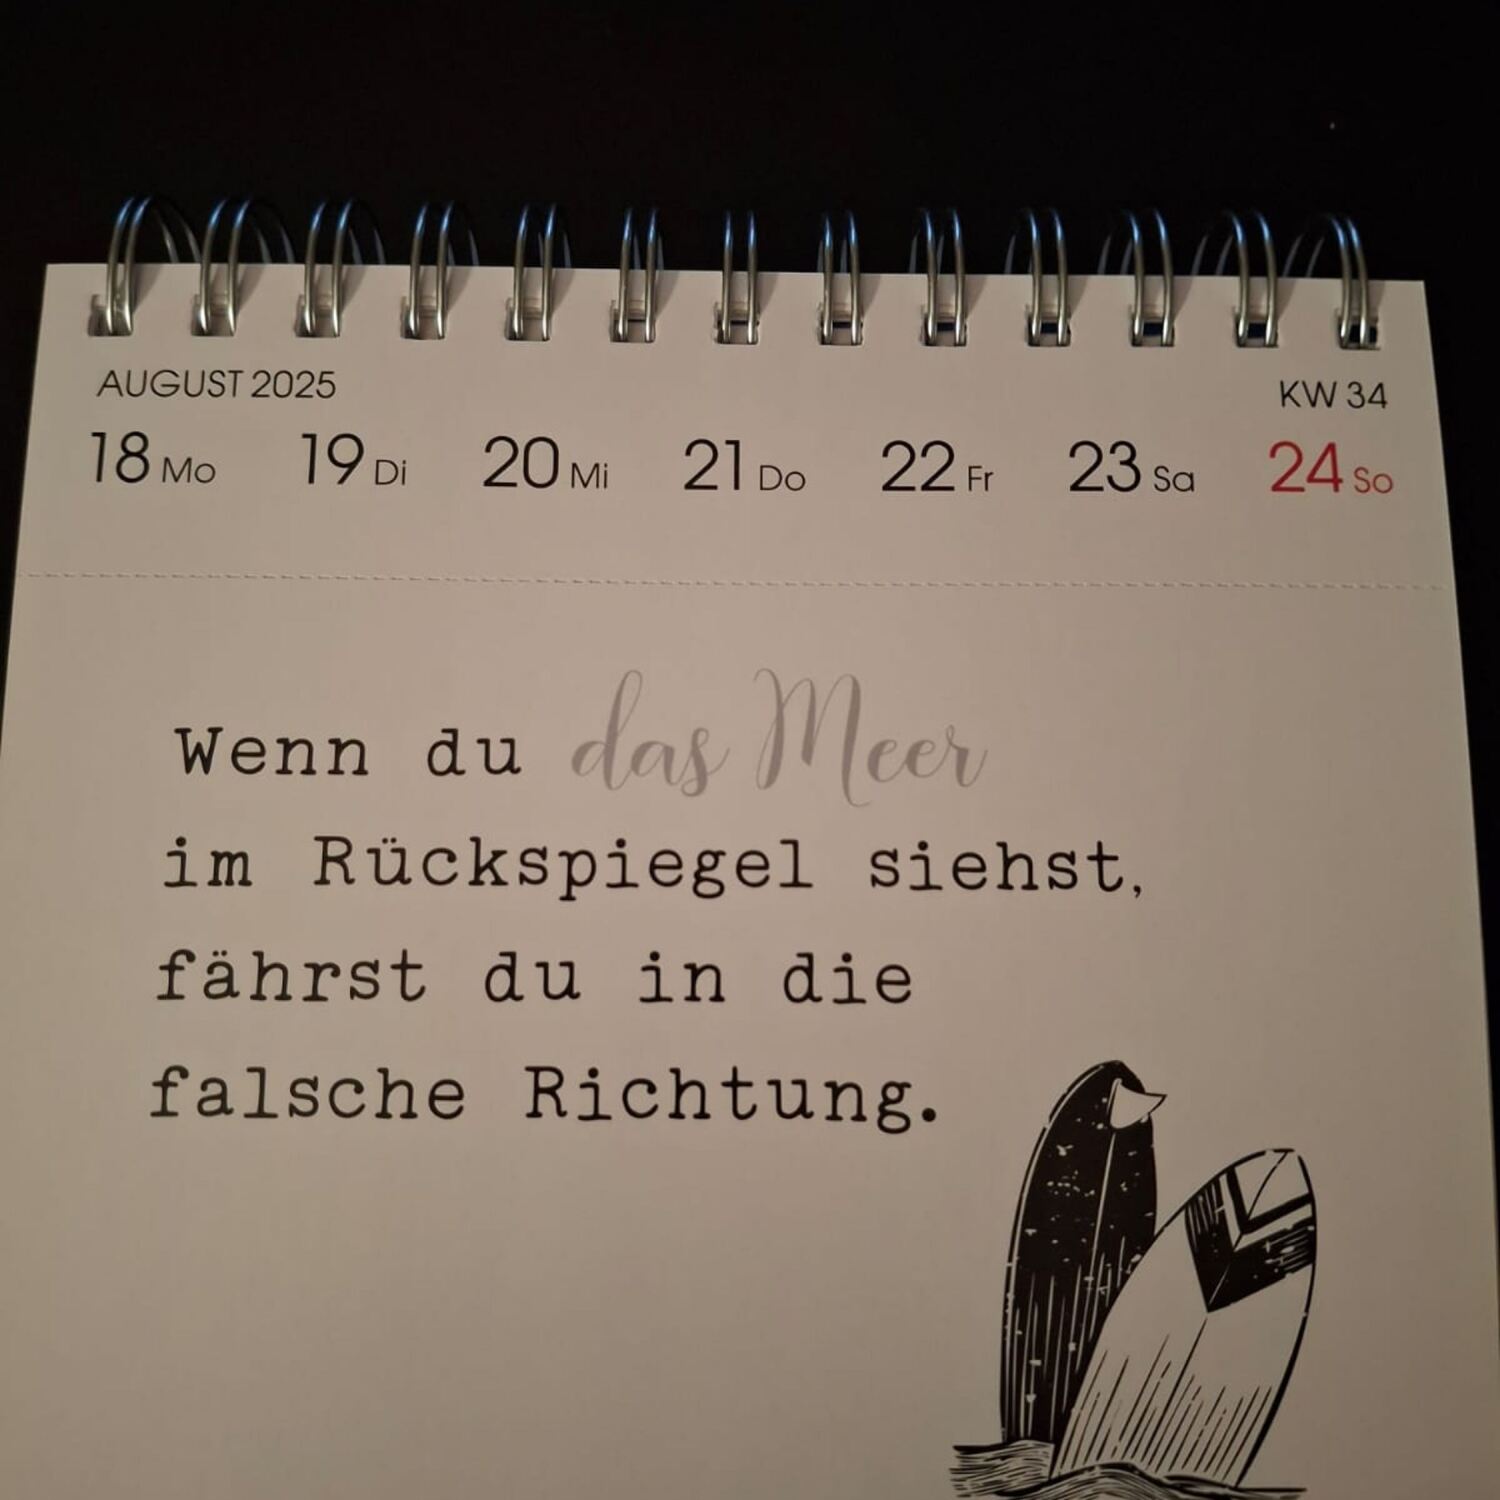 AUGUST 2025 KW 34
18 Mo 19 Di 20 Mi 21 Do 22 Fr 23 Sa 24 So
Wenn du das Meer
im Rückspiegel siehst,
fährst du in die
falsche Richtung.